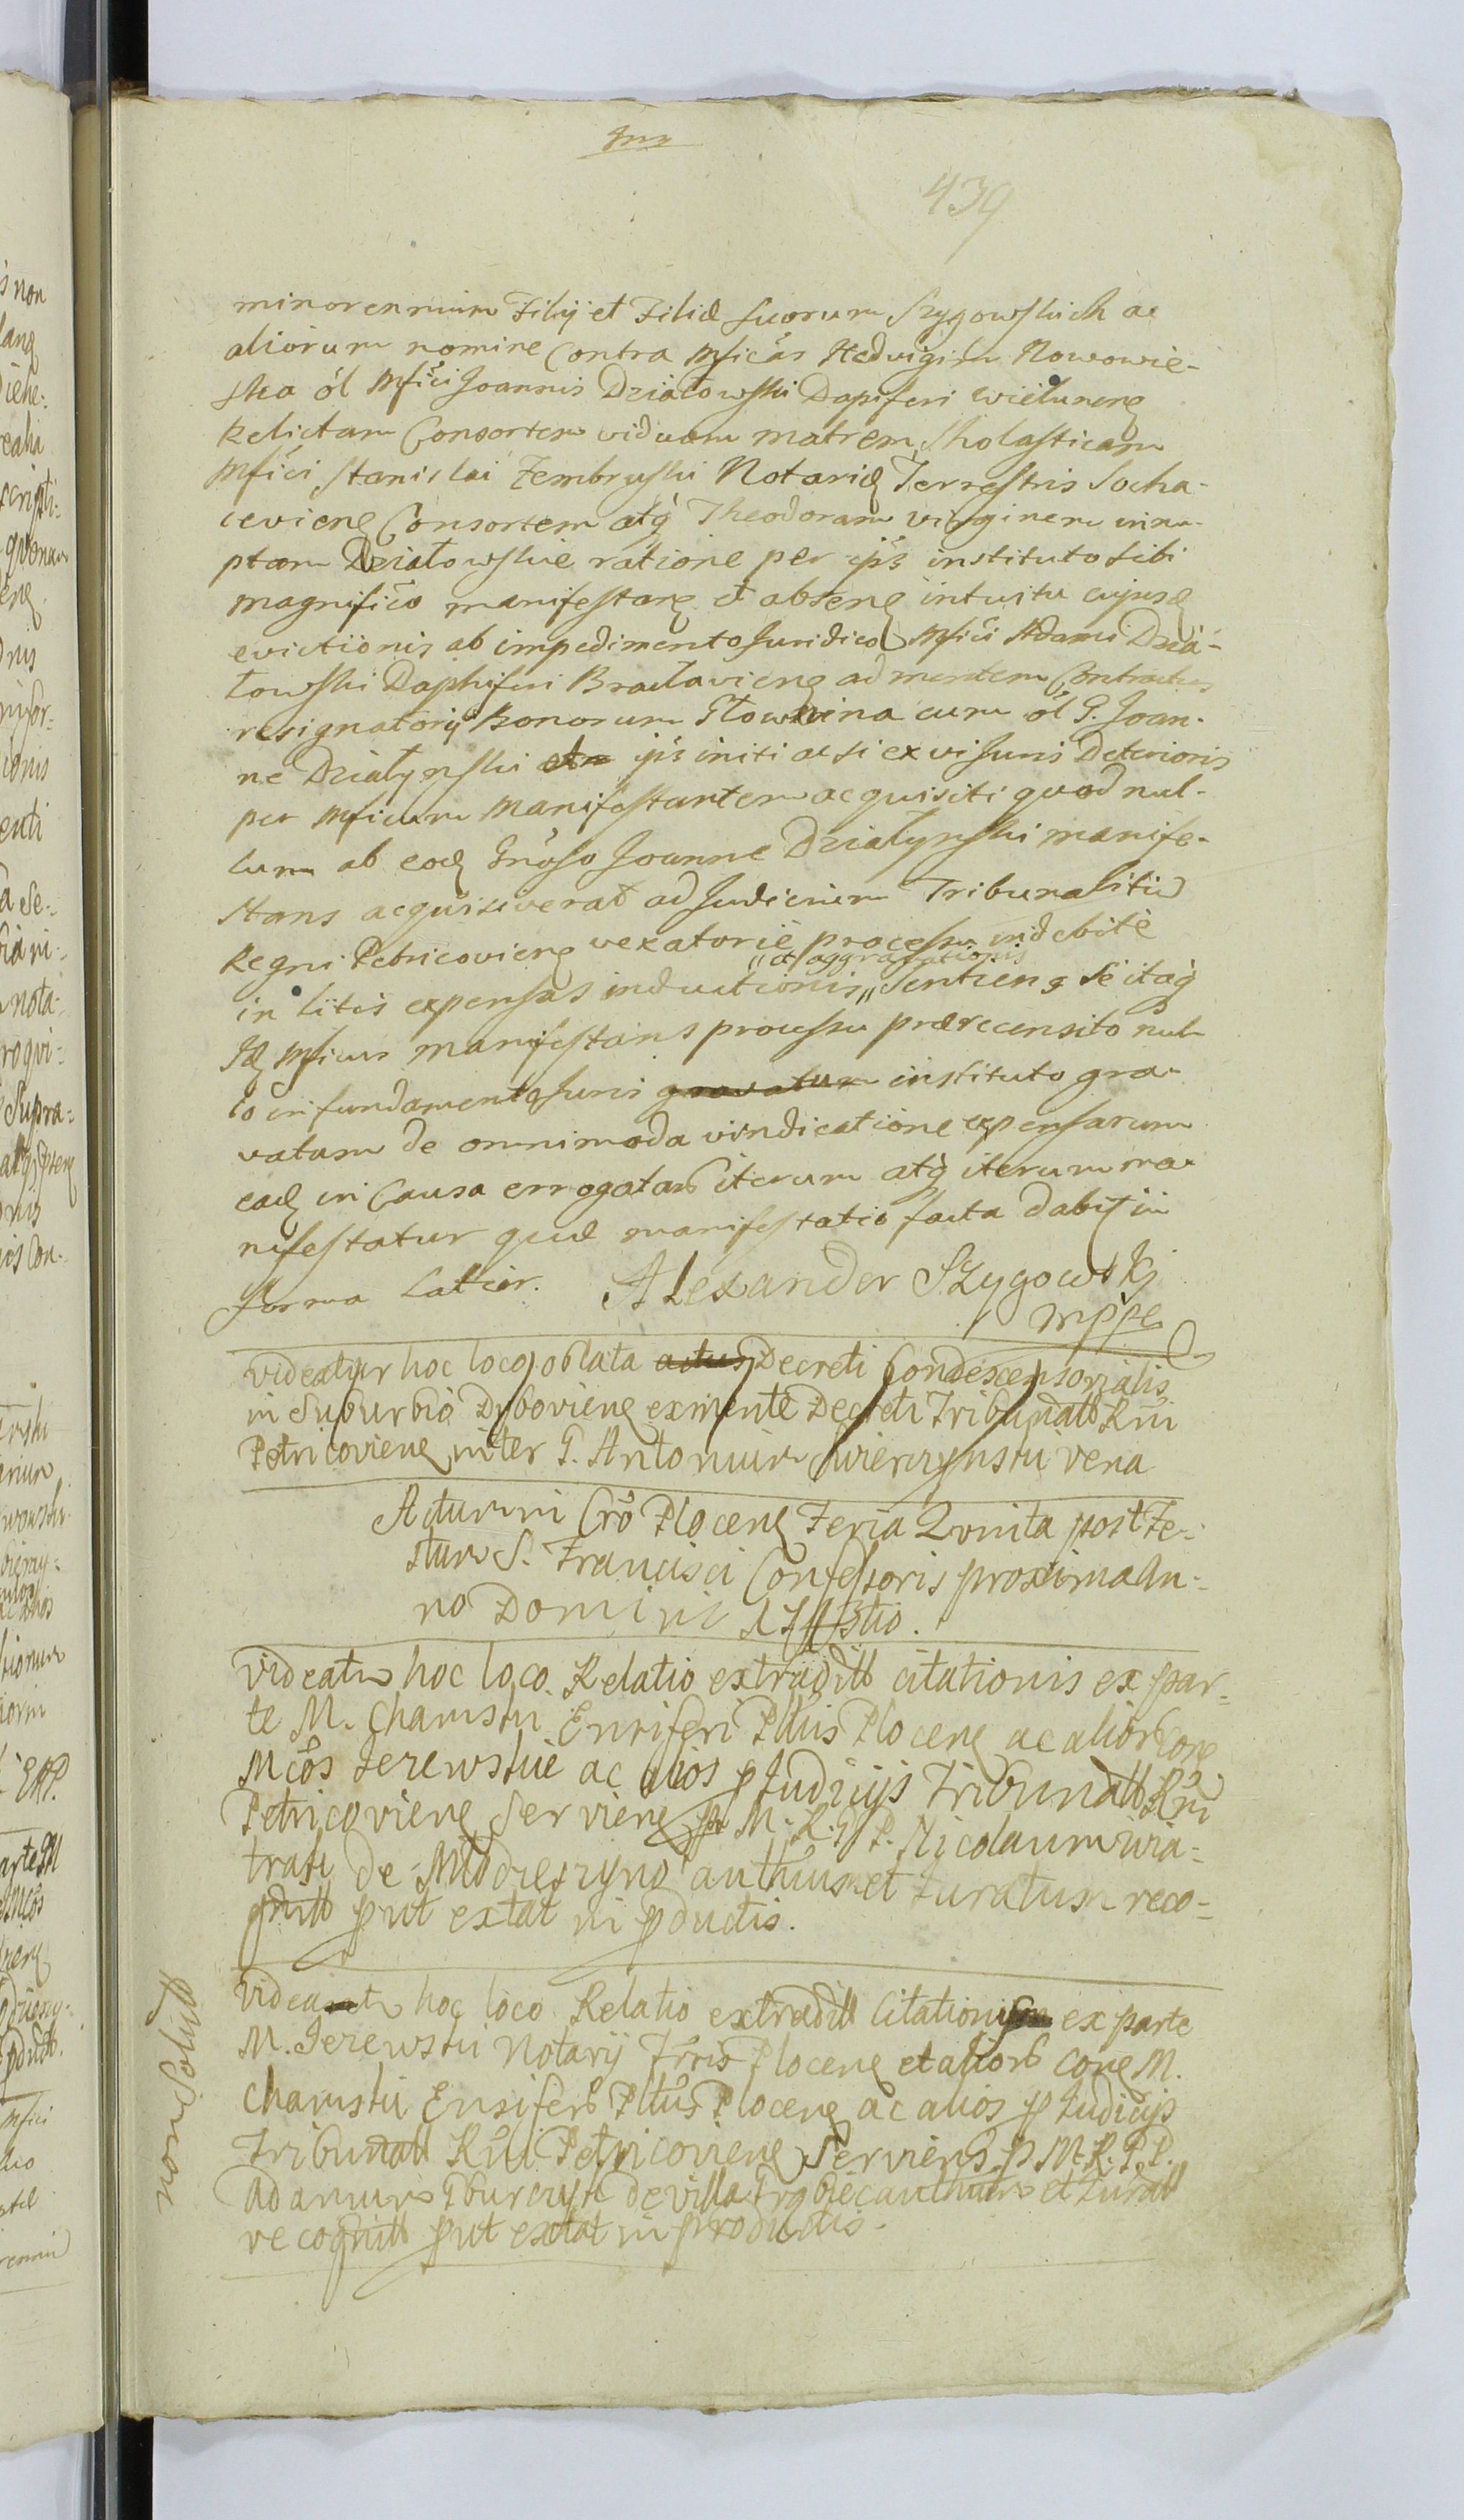 439
minorennium Filij et Filiæ suorum Szygowskich ac
aliorum nomine Contra Mficās Hedvigim Nowowie-
ska ōl Mfici Joannis Działowski Dapiferi Wielunenę
Relictam Consortem viduam matrem, Sholasticam
Mfici Stanislai Zembrzuski Notarię Terrestris Socha-
cevienę Consortem atq̀ Theodoram virginem innu-
ptam Działowskie ratione per ip̄s instituto sibi
magnifico manifestanę et absenę intuitu cujusę
evictionis ab impedimento Juridico Mfici Adami Dzia-
łowski Daphiferi Bracłavienę ad mentem Contractus
resignatorij Bonorum Głowina cum ōl G. Joan-
ne Działynski ip̄s initi ac si ex vi Juris Deterioris
per Mficum Manifestantem acquisiti quod nul-
lum ab eoę Gnōso Joanne Działynski manife-
stans acquisiverat ad Judicium Tribunalitiū
Regni Petricovienę vexatorie processu indebitè
" et aggravationis
in litis expensas inductionis " Sentienę Sè itaq̀
Ię Mficus manifestans processu præecensito nul-
lo in fundamento Juris gravatum instituto gra-
vatum de omnimoda vindicatione expensarum
eaę in Causa errogatarū iterum atq̀ iterum ma-
nifestatur quæ manifestatio facta dabit in
forma latior. Alexander Szygowskj
mppe
Videatur hoc loco oblata actus Decreti Condescensorialis
in Suburbio Dybovienę ex mente Decreti Tribunalłł Rn̄i
Petricovienę inter G. Antonium Swierczynski vena
Actum in Crō Plocenę Feria Quinta post Fe-
stum S. Francisci Confessoris proxima An-
no Domini
Videatur hoc loco Relatio extraditł citationis ex par-
te M. Chamski Ensiferi Pltus Plocenę ac aliorū conę
Mcōs Jerewskie ac alios p Judicijs Tribunałł Rn̄i
Petricovienę Servienę p M. R. G. P. Nicolaum Wia-
trak de Miodresyno authum et Juratum reco-
gnitł put extat in pductis.
Videatur hoc loco Relatio extraditł Citationis ex parte
M. Jerewski Notarij Trr̄is Plocenę et aliorū conę M.
Chamski Ensiferū Pltus Plocenę ac alios p Judicijs
Tribunałł Rn̄i Petricovienę Servienę p M. R. G. P.
Adamum Gburczyk de villa authum et Juratł
recognitł put extat in productis.
non solutł